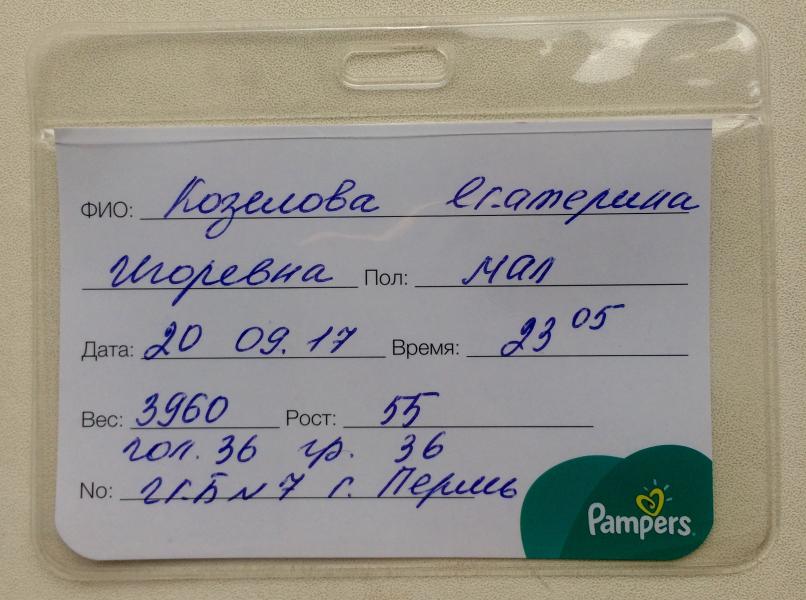 ФИО: Козелова Екатерина
Игоревна Пол: мал
Дата: 20 09.17 Время: 23 05
Вес: 3960 Рост: 55
гол. 36 гр. 36
No: ГКБ №7 г. Пермь
Pampers